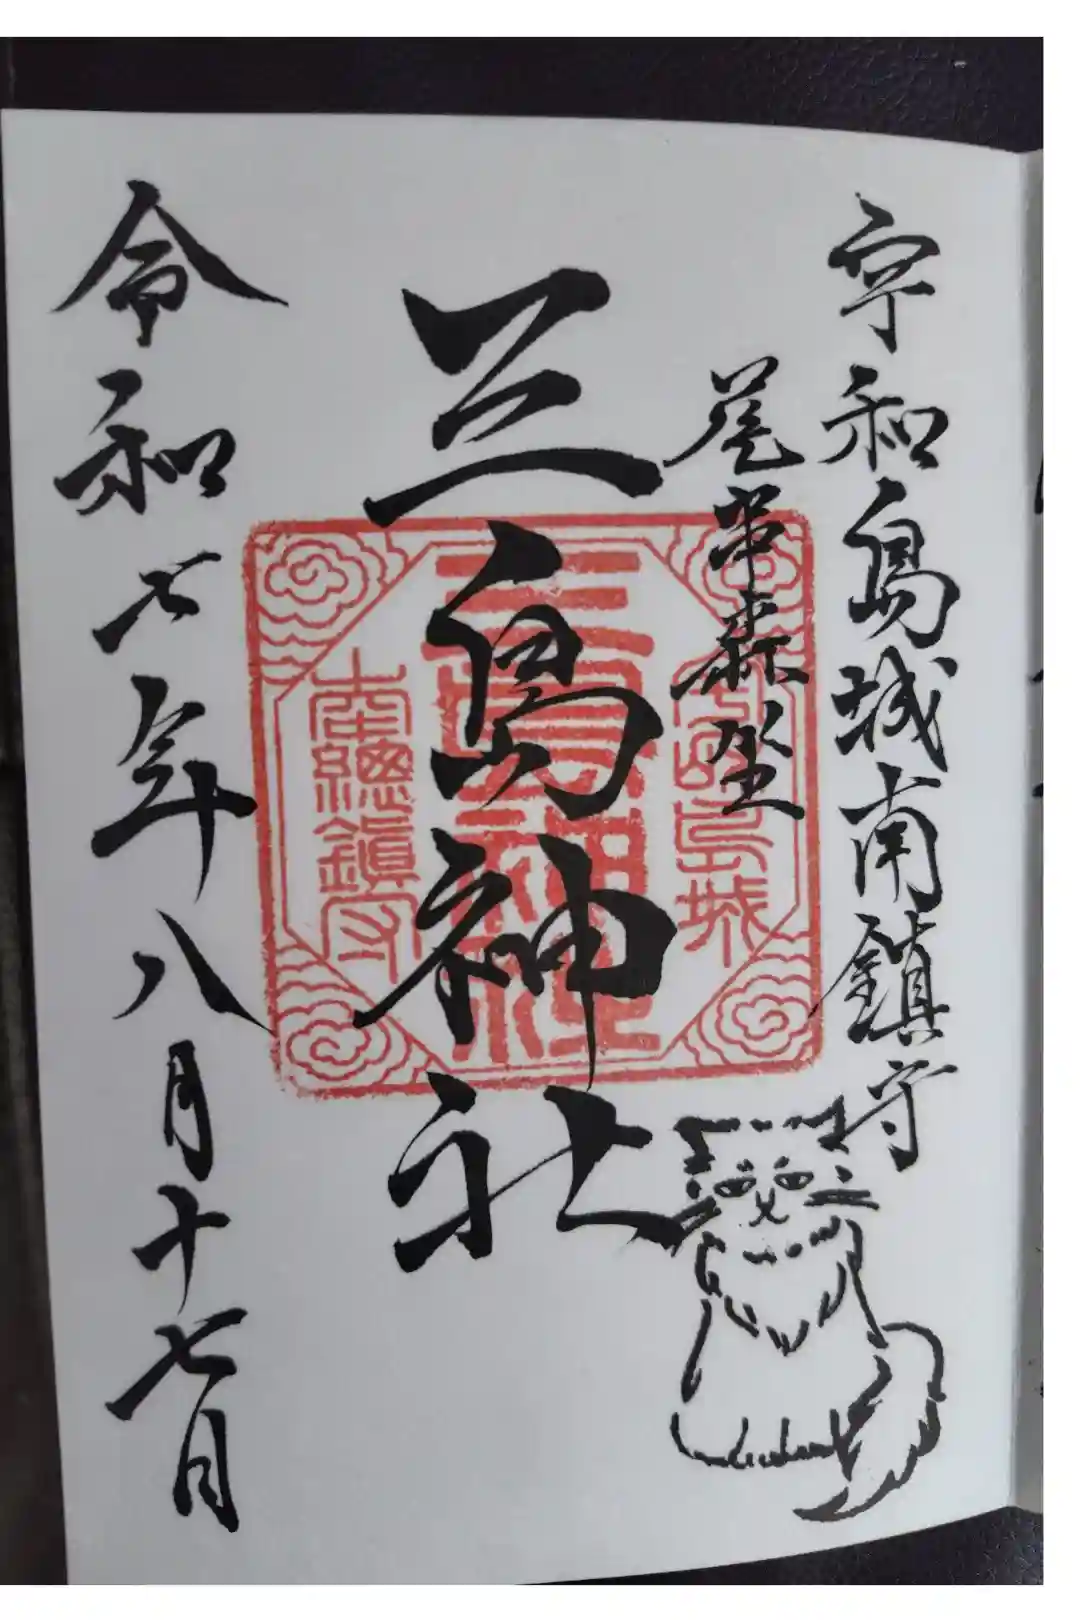 宇和島城南鎮守
尾串森坐
三島神社
令和七年八月十七日
城
三島神社
南總鎮守